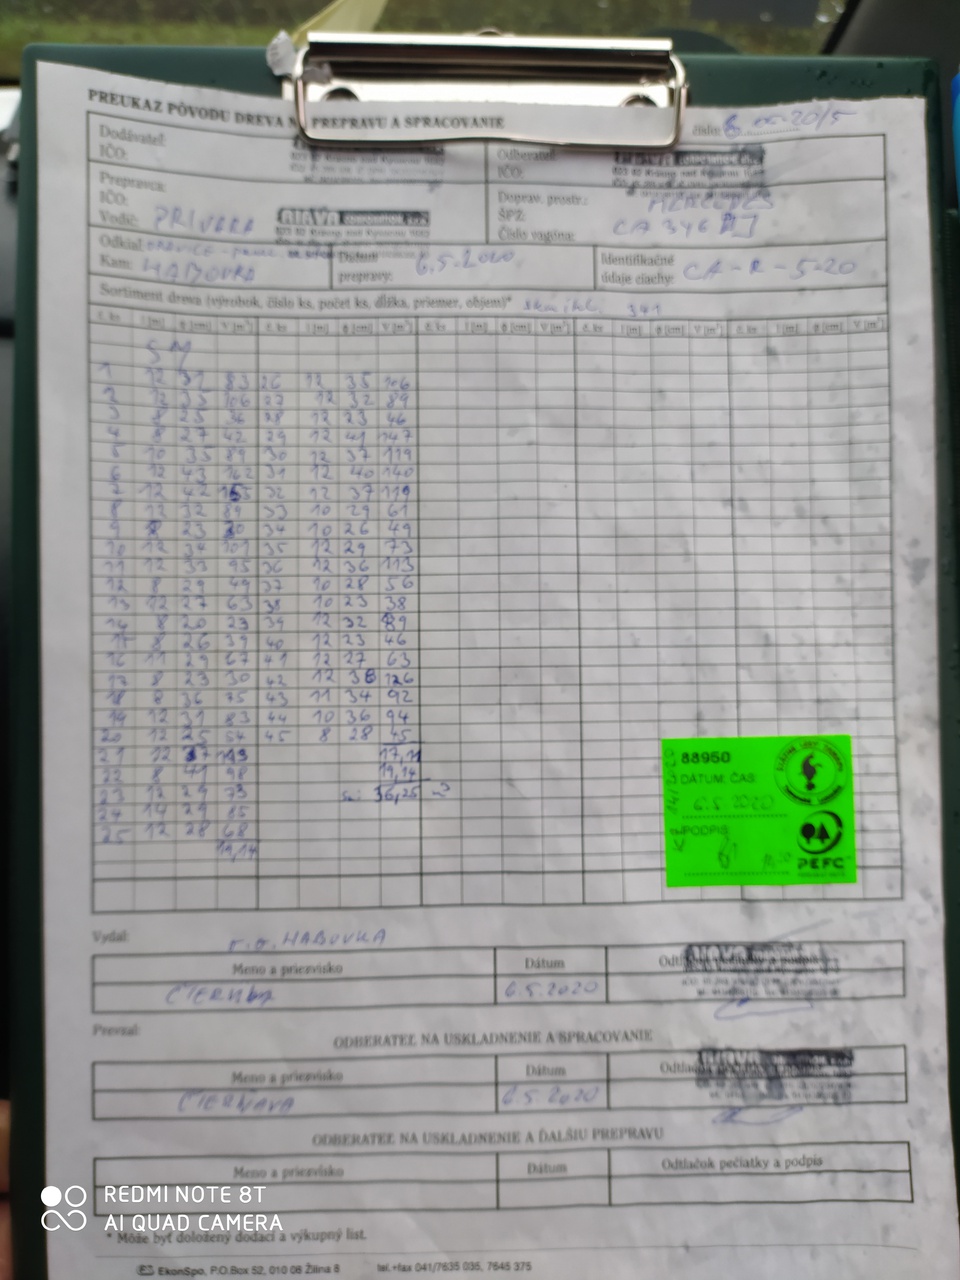 PREUKAZ PÔVODU DREVA N PREPRAVU A SPRACOVANIE
číslo: 20/5
Dodávateľ:
IČO:
Odberateľ
IČO:
Prepravca:
IČO:
Vodič: PRIVARA
Doprav. prostr.: MERCEDES
ŠPZ: CA 346
Číslo vagóna:
Odkiaľ
Kam: HABOVKA
Dátum prepravy: 6.5.2020
Identifikačné údaje ciachy: CA-R-5-20
Sortiment dreva (výrobok, číslo ks, počet ks, dĺžka, priemer, objem)*
č. ks l [m] ø [cm] V [m³] č. ks l [m] ø [cm] V [m³] č. ks l [m] ø [cm] V [m³] č. ks l [m] ø [cm] V [m³] č. ks l [m] ø [cm] V [m³]
SM
1 12 31 83 26 12 35 106
2 12 35 106 27 12 32 89
3 8 25 36 28 12 23 46
4 8 27 42 29 12 41 147
5 10 35 89 30 12 37 119
6 12 43 162 31 12 40 140
7 12 42 155 32 12 37 119
8 12 32 89 33 10 29 61
9 8 23 30 34 10 26 49
10 12 34 101 35 12 29 73
11 12 33 95 36 12 36 113
12 8 29 49 37 10 28 56
13 12 27 63 38 10 23 38
14 8 20 23 39 12 32 89
15 8 26 39 40 12 23 46
16 11 29 67 41 12 27 63
17 8 23 30 42 12 38 126
18 8 36 75 43 11 34 92
19 12 31 83 44 10 36 94
20 12 25 54 45 8 28 45
21 12 17,11
22 8 41 98 19,14
23 12 29 73 36,25 m³
24 14 29 85
25 12 28 68
19,14
88950
DÁTUM: ČAS:
6.5.2020
PODPIS:
PEFC
Vydal:
HABOVKA
Meno a priezvisko Dátum
6.5.2020
Prevzal:
ODBERATEĽ NA USKLADNENIE A SPRACOVANIE
Meno a priezvisko Dátum
ČIERŇAVA 6.5.2020
ODBERATEĽ NA USKLADNENIE A ĎALŠIU PREPRAVU
Meno a priezvisko Dátum Odtlačok pečiatky a podpis
* Môže byť doložený dodací a výkupný list.
EkonSpo, P.O.Box 52, 010 08 Žilina 8 tel.+fax 041/7635 035, 7645 375
REDMI NOTE 8T
AI QUAD CAMERA